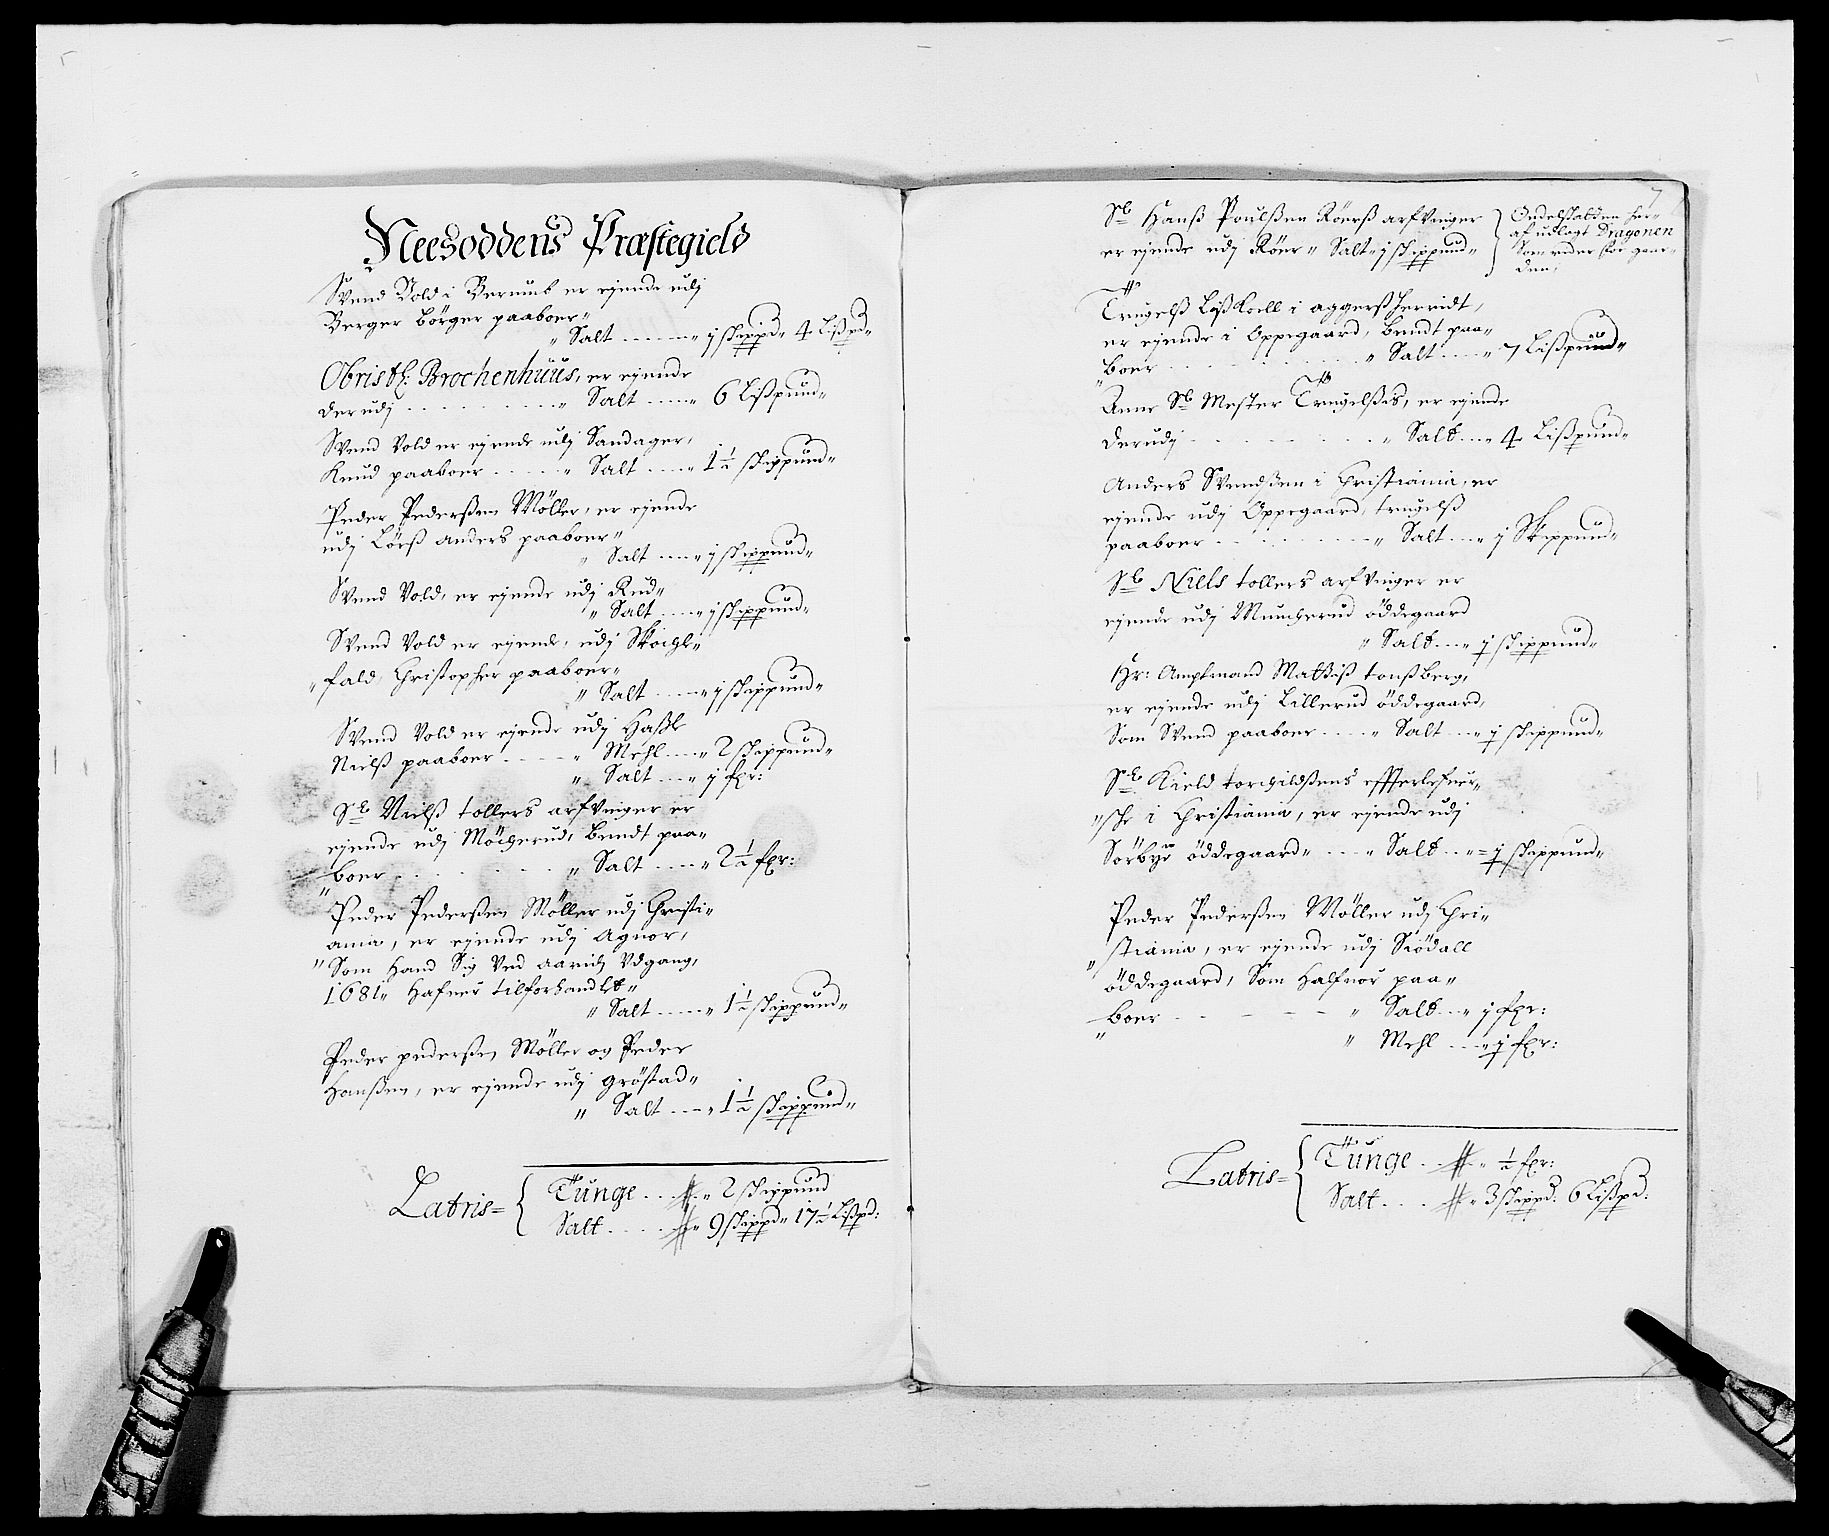 Neesoddens Præstegield
Svend Vold i Berumb er ejende udj
Berger börger paaboer„
„ Salt ...... „ j skippd„ 4 Lißpd„
Obristl: Brochenhüüs, er ejende
derudj . . . . . . „ Salt ..... „ 6 Lißpund„
Svend Vold er ejende udj Sandager,
Knud paaboer ..... „ Salt ..... „ 1½ skippund„
Peder Pederßen Möller, er ejende
udj Anders paaboer„
„ Salt ..... „ j skippund„
Svend Vold, er ejende udj Rud„
„ Salt ..... „ j skippund„
Svend Vold er ejende, udj
„fald, Christopher paaboer„
„ Salt ..... „ j skippund„
Svend Vold er ejende udj Haßle
Nielß paaboer ..... „ Mehl .... „ 2 skippund„
„ Salt .... „ j fxr:
Sl Nielß tollers arfvinger er
ejende udj Möcherud, bendt paa„
„boer . . . . . . „ Salt ..... „ 2½ fxr:
Peder Pederßen Möller udj Christi„
„ania, er ejende udj Agnor,
Som Hand Sig Ved aarids Udgang,
1681„ Hafuer tilforhandlet„
„ Salt ..... „ 1½ skippund„
Peder pederßen Möller og Peder
Hanßen, er ejende udj gröstad„
„ Salt .... „ 1½ skippund„
Latris= Tünge ... „ 2 skippund
Salt .... „ 9 skippd„ 17½ Lißpd:
7
Sl Hanß Poulßen Röerß arfvinger
er ejende udj Röer„ Salt„ j skippund„
Ondelskalden her„
af udlagt Dragonen
Som reder for gaar„
den,
Trugelß i aggerßherridt,
er ejende i Oppegaard, bendt paa„
„boer . . . . . . „ Salt .... „ 7 Lißpund„
Anne Sl Mester Trugelßes, er ejende
derudj . . . . . . „ Salt .... „ 4 Lißpund„
Anders Svendßen i Christiania, er
ejende udj Oppegaard, trugelß
paaboer . . . . . . „ Salt .... „ j Skippund„
Sl Niels tollers arfvinger er
ejende udj Muncherud öddegaard
„ Salt .... „ j skippund„
Hr: Amptmand Mathiß tonßberg,
er ejende udj Lillerud öddegaard,
Som Svend paaboer .... „ Salt .... „ j skippund„
Sl Kield torchildßens effterlefuer„
„sche i Christiania, er ejende udj
Sörbye öddegaard„ .... „ Salt .... „ j skippund„
Peder Pederßen Möller udj Chri„
„stiania, er ejende udj Siödall
öddegaard, Som Halfuor paa„
„boer . . . . . . „ Salt .... „ j fxr:
„ Mehl .... „ j fxr:
Latris= Tünge ... „ ½ fxr:
Salt .... „ 3 skippd. 6 Lißpd: